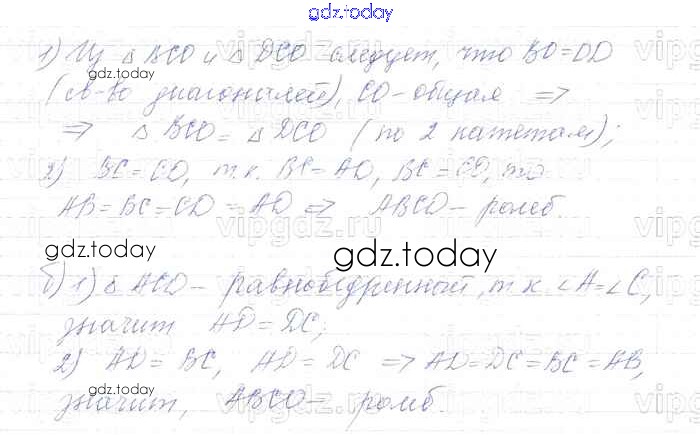 gdz.today
1) Из △ BCO и △ DCO следует, что BO=OD
gdz.today
(св-во диагоналей), CO-общая ⇒
⇒ △ BCO = △ DCO (по 2 катетам);
2) BC=CD, т.к. BC=AD, BC=CD, то
AB=BC=CD=AD ⇒ ABCD- ромб.
vipgdz.ru
gdz.today gdz.today
б) 1) △ ACD- равнобедренный, т.к. ∠A=∠C,
значит AD=DC;
2) AD=BC, AD=DC ⇒ AD=DC=BC=AB,
gdz.today
значит, ABCD- ромб.